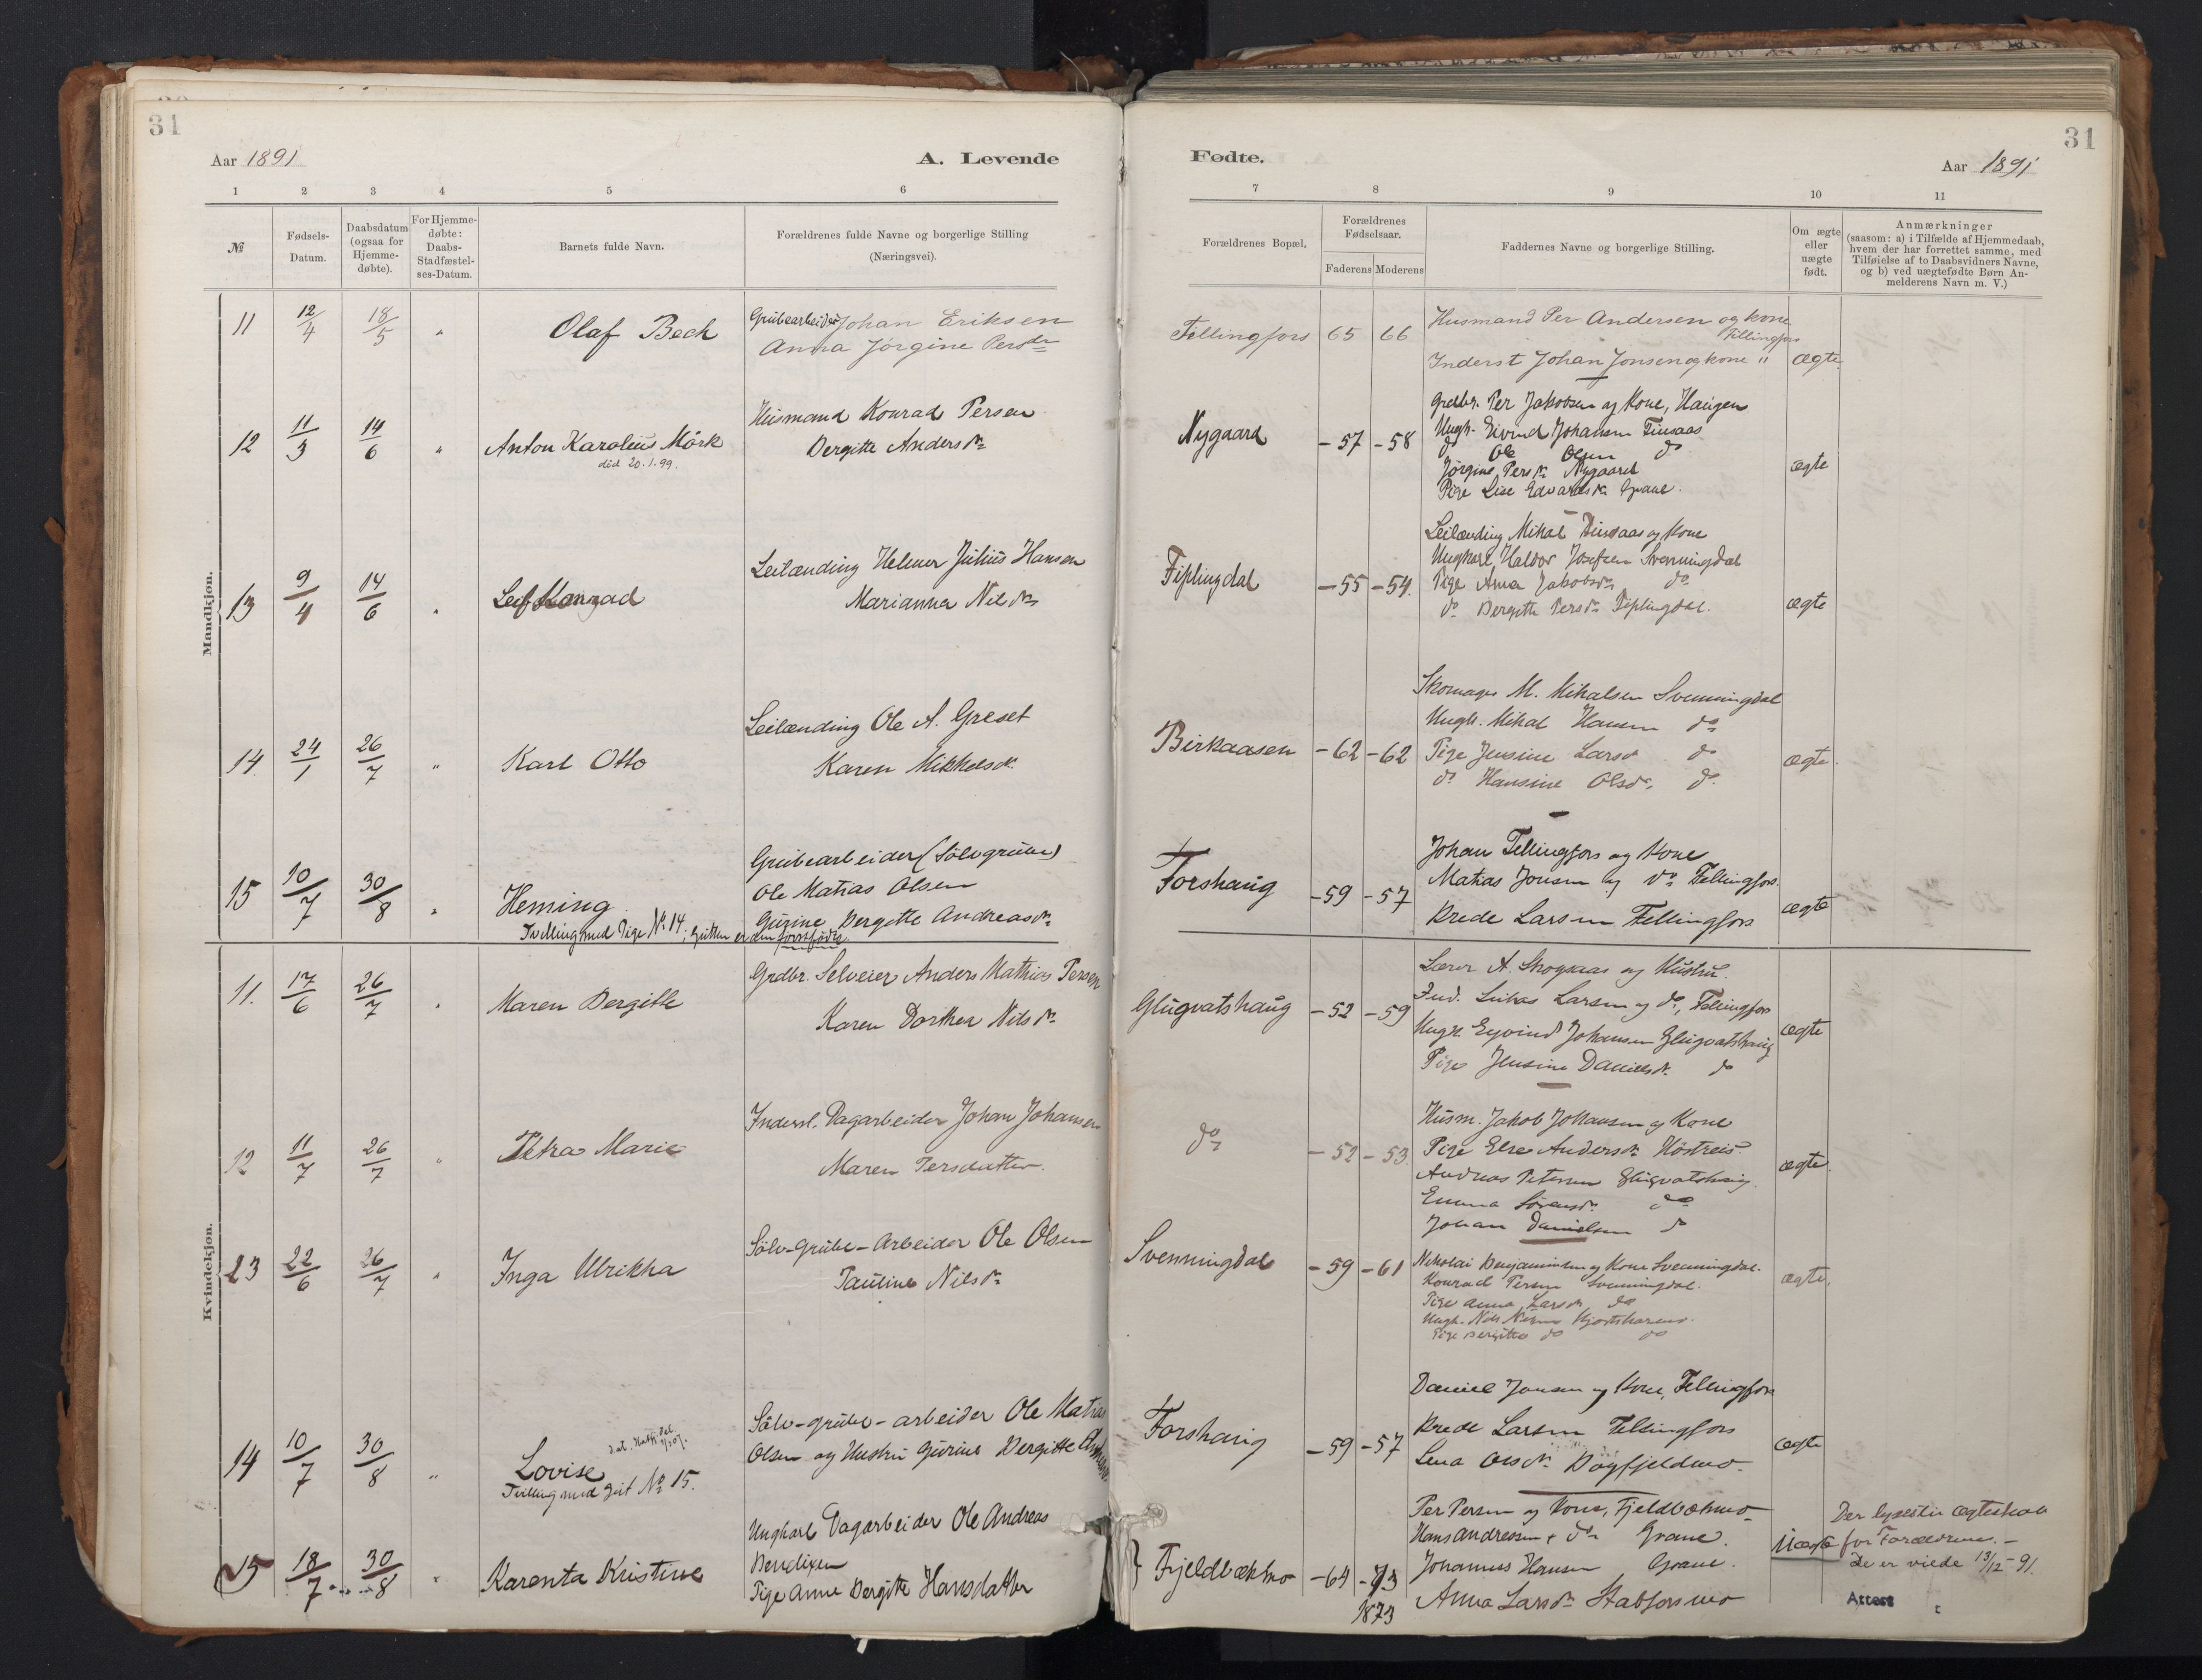 31
Aar 1891
A. Levende
1 2 3 4 5 6
№
Fødsels-
Datum.
Daabsdatum
(ogsaa for
Hjemme-
døbte).
For Hjemme-
døbte:
Daabs-
Stadfæstel-
ses-Datum.
Barnets fulde Navn.
Forældrenes fulde Navne og borgerlige Stilling
(Næringsvei).
Mandkjøn.
11 12/4 18/5 " Olaf Beck
Grubearbeider Johan Eriksen
Anna Jørgine Persdr
12 11/3 14/6 " Anton Karolius Mörk
död 20.1.99.
Husmand Konrad Persen
Bergitte Andersdr
13 9/4 14/6 " Leif Konrad
Leilænding Helmer Julius Hansen
Marianna Nilsdr
14. 24/1 26/7 " Karl Otto
Leilænding Ole A. Greset
Karen Mikkelsdr.
15 10/7 30/8 " Heming
Tvilling med Pige № 14; Gutten er den førstfödte.
Grubearbeider (Sölvgrube)
Ole Matias Olsen
Gurine Bergitte Andreasdr
Kvindekjøn.
11. 17/6 26/7 " Maren Bergitte
Grdbr. Selveier Anders Mathias Persen
Karen Dorthea Nilsdr
12 11/7 26/7 " Petra Marie
Inderst. Dagarbeider Johan Johansen
Maren Persdatter.
23 22/6 26/7 " Inga Ulrikka
Sölv-Grube-Arbeider Ole Olsen
Pauline Nilsdr
14 10/7 30/8 " Lovise
Tvilling med Gut № 15.
Sölv-grube-arbeider Ole Matias
Olsen og Hustru Gurine Bergitte
15 18/7 30/8 " Karenta Kristine
Ungkarl Dagarbeider Ole Andreas
Bendixen
Pige Anne Bergitte Hansdatter
31
Fødte.
Aar 1891
7 8 9 10 11
Forældrenes Bopæl.
Forældrenes
Fødselsaar.
Faderens Moderens
Faddernes Navne og borgerlige Stilling.
Om ægte
eller
uægte
født.
Anmærkninger
(saasom: a) i Tilfælde af Hjemmedaab,
hvem der har forrettet samme, med
Tilføielse af to Daabsvidners Navne,
og b) ved uægtefødte Børn An-
melderens Navn m. V.)
Fellingfors 65 66
Husmand Per Andersen og kone
Fellingfors
Inderst Johan Jonsen og kone " Ægte.
Nygaard -57 -58
Grdbr. Per Jakobsen og Kone, Haugen
Ungk. Eivind Johansen
do Ole Olsen do
Jørgine Persdr Nygaard ægte
Pige Lise Edvardsdr Grane.
Fiplingdal -55 -54.
Leilænding Mikal og Kone
Ungkarl Haldor Josefsen Svenningdal
Pige Anna Jakobsdr do
do Bergitte Persdr Fiplingdal. ægte
Birkaasen -62 -62
Skomager M. Mikalsen Svenningdal
Ungk. Mikal Hansen do
Pige Jensine Larsd do ægte.
do Hansine Olsdr. do
Forshaug -59 -57
Johan Fellingfors og Kone
Matias Jonsen og do Fellingfors.
Brede Larsen Fellingfors ægte
Glugvatshaug -52 -59
Lærer A. Skogsaas og Hustru.
Ind. Lukas Larsen og do, Fellingfors
Ungk. Eyvind Johansen Glugvatshaug ægte
Pige Jensine Danielsdr. do
do -52 -53.
Husm. Jakob Johansen og Kone
Pige Else Andersdr
Andreas Petersen Glugvatshaug ægte.
Emma Sörensdr. do
Johan Danielsen do
Svenningdal -59 -61
Nikolai Benjaminsen og Kone Svenningdal.
Konrad Persen Svenningdal. ægte.
Pige Anna Larsdr do
Ungk. Nils
Pige Bergitte do do
Forshaug -59 -57
Daniel Jonsen og Kone, Fellingfors
Brede Larsen Fellingfors
Lena Olsdr. ægte
Fjeldbækmo -64 -73
1873
Per Persen og Kone, Fjeldbækmo
Hans Andreasen & do Grane.
Johannes Hansen Grane.
Anna Larsdr Stabforsmo
Uægte
Der lyses til Ægteskab
for Forældrene. -
De er viede 13/12 - 91.
Attest